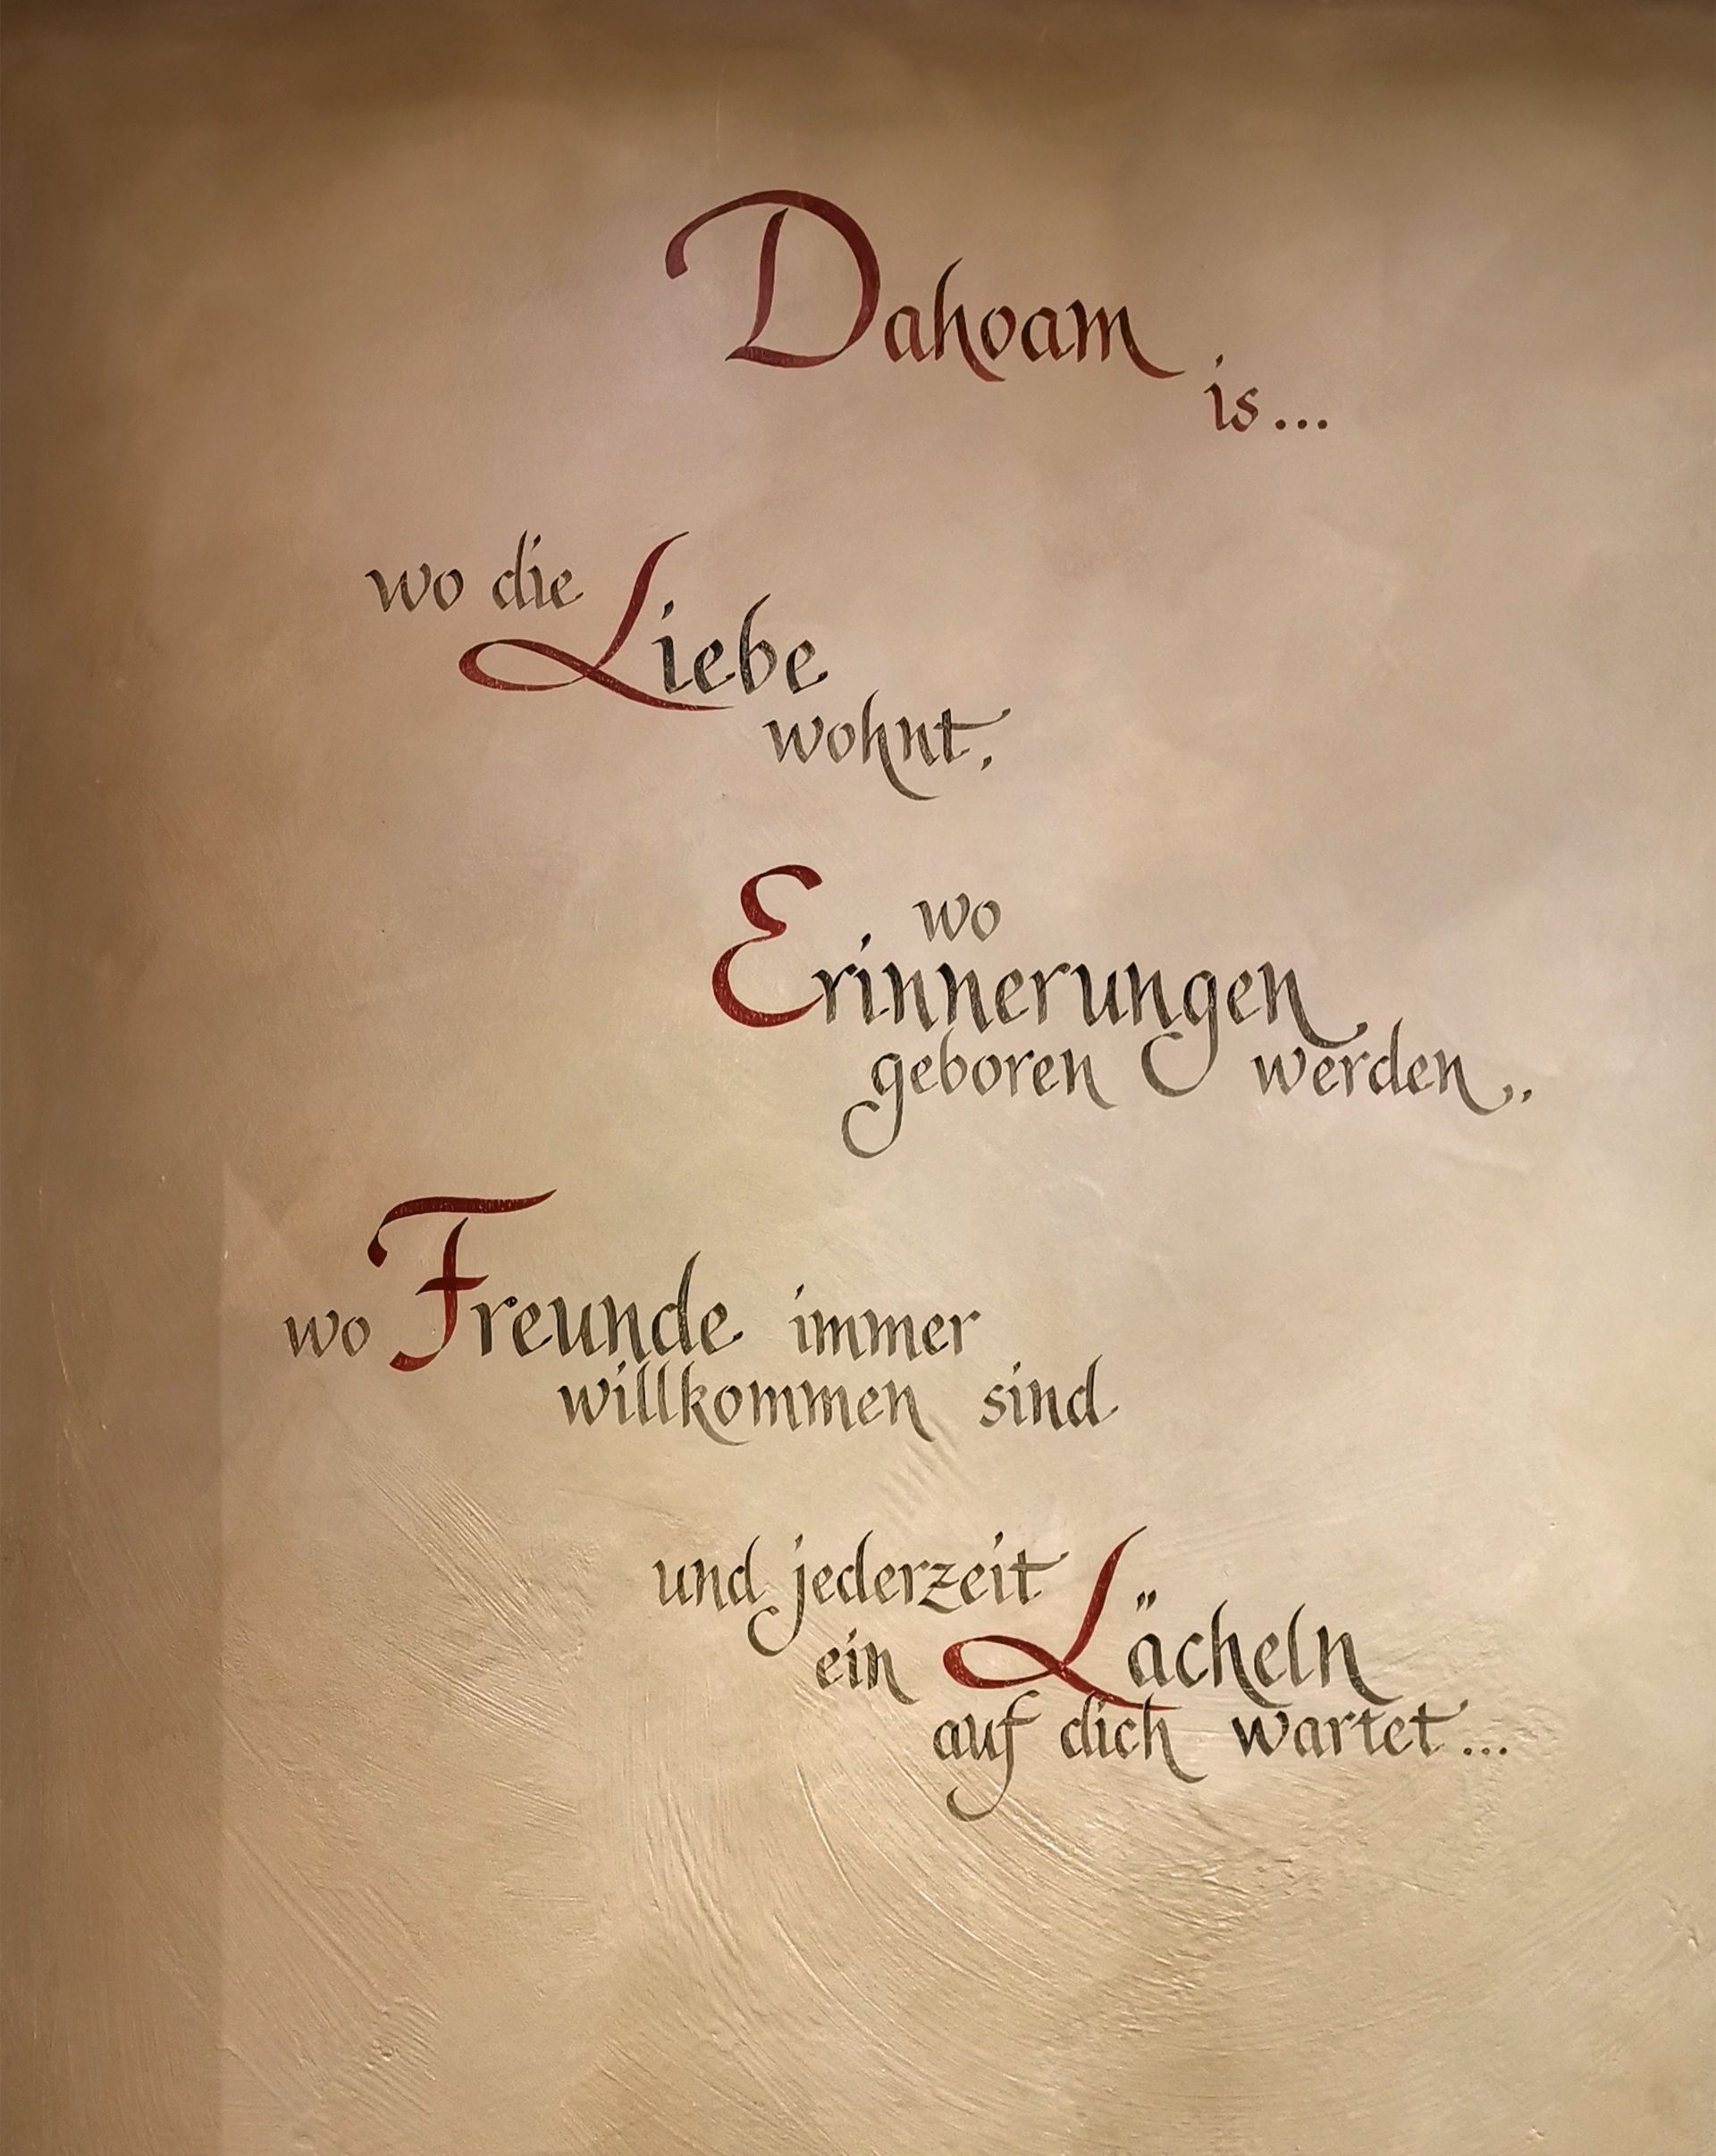 Dahoam
is...
wo die
Liebe
wohnt,
wo
Erinnerungen
geboren werden,
wo Freunde immer
willkommen sind
und jederzeit
ein Lächeln
auf dich wartet...